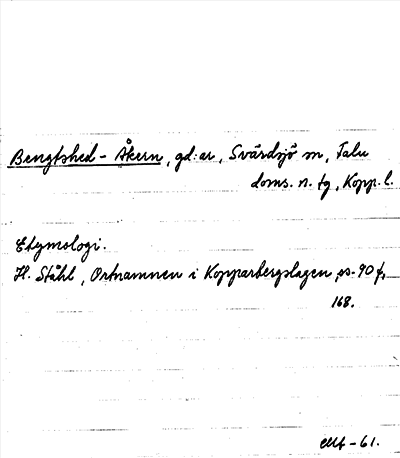 Bengtshed - Åkern, gd:ar, Svärdsjö sn, Falu
doms. n. tg, Kopp. l.
Etymologi.
H. Ståhl, Ortnamnen i Kopparbergslagen, s. 90 f,
168.
-61.